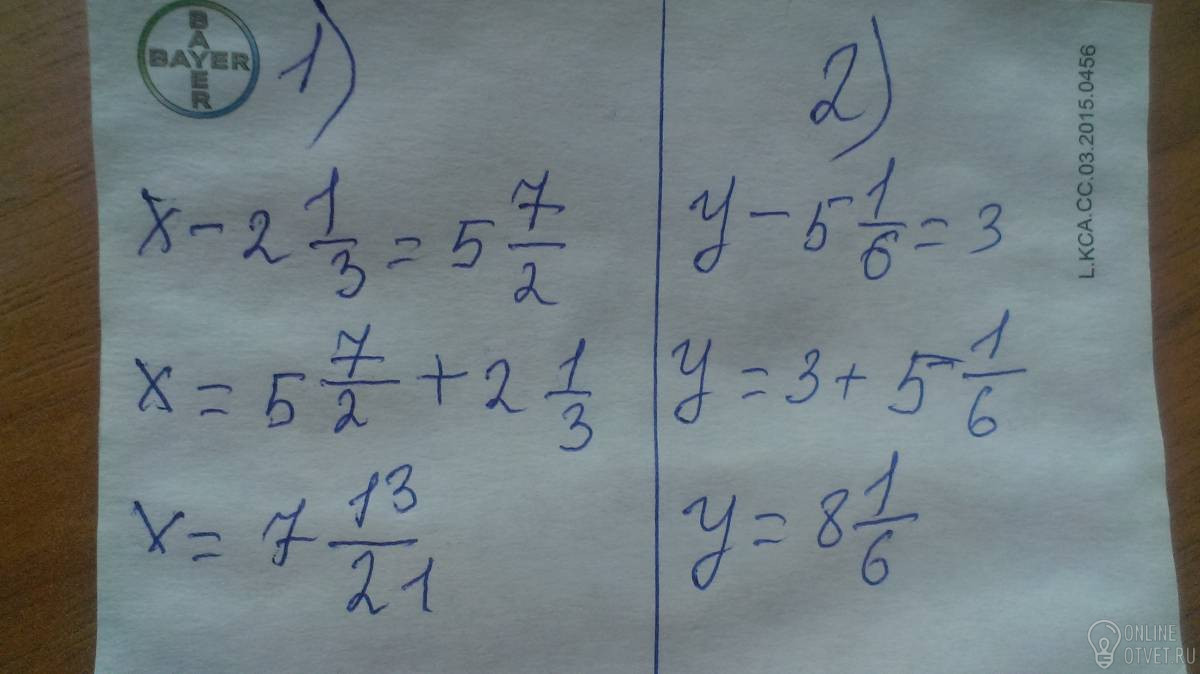 BAYER
BAYER
1)
x - 2 1/3 = 5 7/2
x = 5 7/2 + 2 1/3
x = 7 13/21
2)
y - 5 1/6 = 3
y = 3 + 5 1/6
y = 8 1/6
L.KCA.CC.03.2015.0456
ONLINE
OTVET.RU